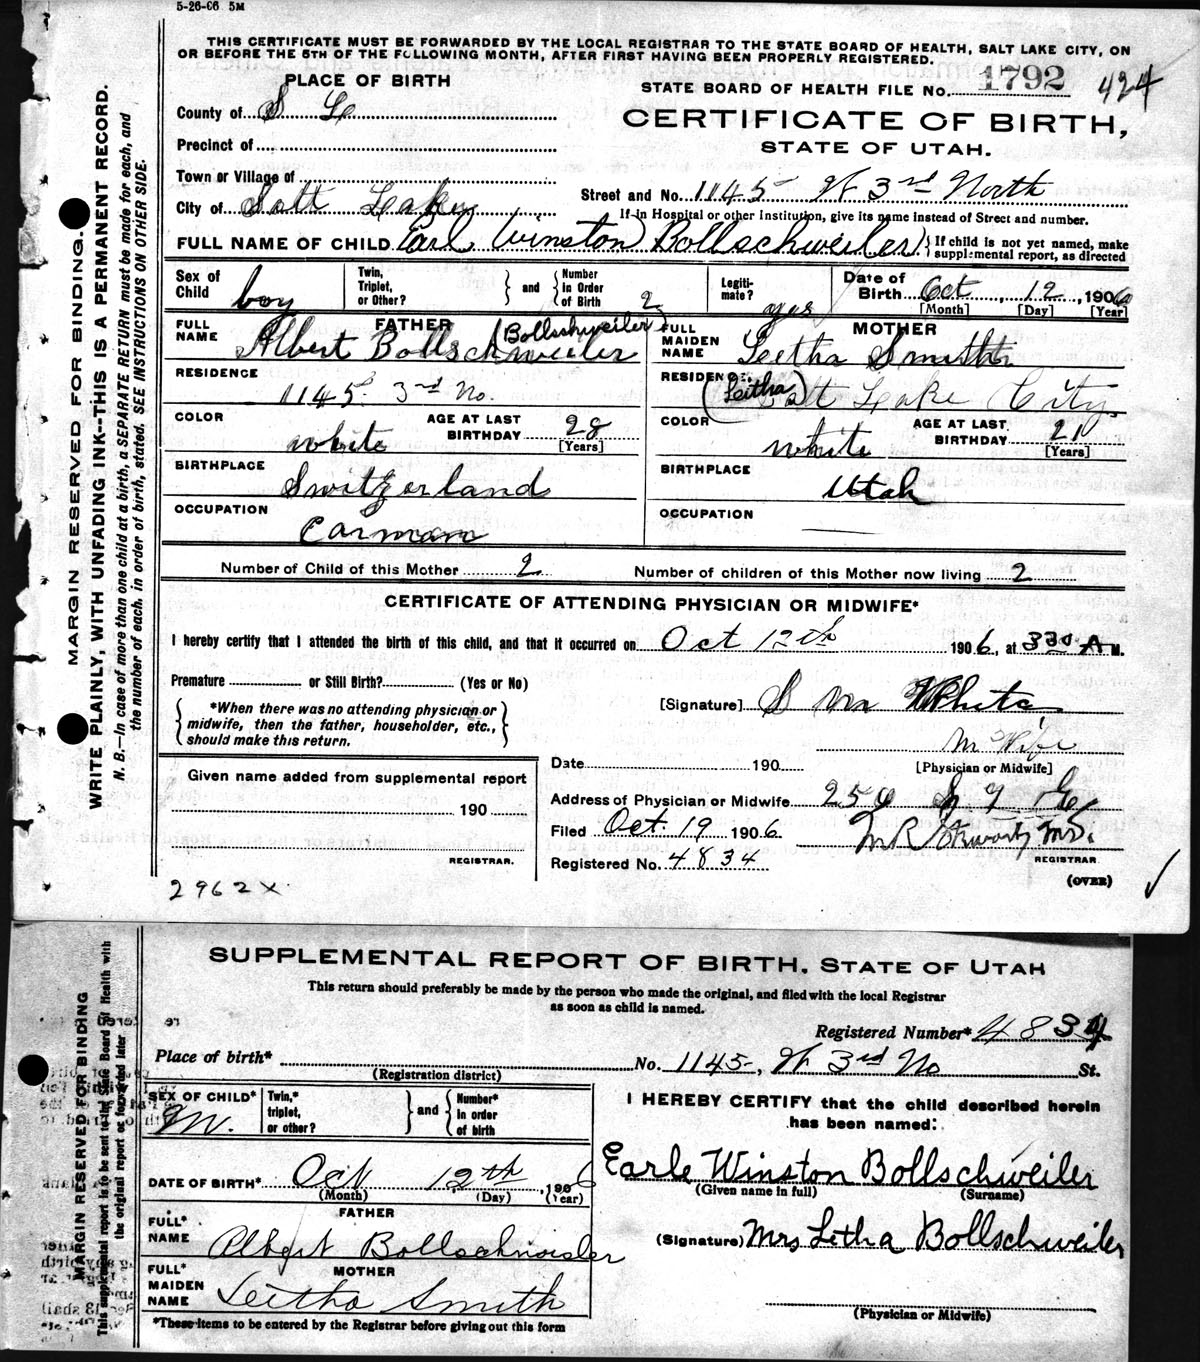 5-26-06 5M
THIS CERTIFICATE MUST BE FORWARDED BY THE LOCAL REGISTRAR TO THE STATE BOARD OF HEALTH, SALT LAKE CITY, ON
OR BEFORE THE 5TH OF THE FOLLOWING MONTH, AFTER FIRST HAVING BEEN PROPERLY REGISTERED.
PLACE OF BIRTH
STATE BOARD OF HEALTH FILE No. 1792 424
County of S L
CERTIFICATE OF BIRTH,
Precinct of
STATE OF UTAH.
Town or Village of
City of Salt Lake
Street and No. 1145 W 3rd North
If in Hospital or other Institution, give its name instead of Street and number.
FULL NAME OF CHILD Earl Winston Bollschweiler } If child is not yet named, make supplemental report, as directed
Sex of Child boy
Twin, Triplet, or Other? } and { Number in Order of Birth 2
Legiti-mate? yes
Date of Birth Oct, 12, 1906
[Month] [Day] [Year]
FATHER
FULL NAME Albert Bollschweiler (Bollschweiler)
RESIDENCE
1145 3rd No.
COLOR white
AGE AT LAST BIRTHDAY 28 [Years]
BIRTHPLACE
Switzerland
OCCUPATION
Carman
MOTHER
FULL MAIDEN NAME Leetha Smith
RESIDENCE (Leitha) Lake City
COLOR white
AGE AT LAST BIRTHDAY 21 [Years]
BIRTHPLACE
Utah
OCCUPATION
Number of Child of this Mother 2 Number of children of this Mother now living 2
CERTIFICATE OF ATTENDING PHYSICIAN OR MIDWIFE*
I hereby certify that I attended the birth of this child, and that it occurred on Oct 12th 1906, at 330 A M.
Premature or Still Birth? (Yes or No)
*When there was no attending physician or
midwife, then the father, householder, etc.,
should make this return.
[Signature] S M White
M Wife
Date 190 [Physician or Midwife]
Given name added from supplemental report
190
REGISTRAR.
Address of Physician or Midwife 256
Filed Oct. 19 1906
REGISTRAR
Registered No. 4834
(OVER)
2962 x
MARGIN RESERVED FOR BINDING.
WRITE PLAINLY, WITH UNFADING INK--THIS IS A PERMANENT RECORD.
N. B.--In case of more than one child at a birth, a SEPARATE RETURN must be made for each, and
the number of each, in order of birth, stated. SEE INSTRUCTIONS ON OTHER SIDE.
SUPPLEMENTAL REPORT OF BIRTH. STATE OF UTAH
This return should preferably be made by the person who made the original, and filed with the local Registrar
as soon as child is named.
Registered Number* 4834
Place of birth* No. 1145, W 3rd No St.
(Registration district)
SEX OF CHILD* M.
Twin,* triplet, or other? } and { Number* in order of birth
DATE OF BIRTH* Oct 12th, 1906
(Month) (Day) (Year)
FATHER
FULL* NAME Albert Bollschweiler
MOTHER
FULL* MAIDEN NAME Leitha Smith
*These items to be entered by the Registrar before giving out this form
I HEREBY CERTIFY that the child described herein
has been named:
Earle Winston Bollschweiler
(Given name in full) (Surname)
(Signature) Mrs Letha Bollschweiler
(Physician or Midwife)
MARGIN RESERVED FOR BINDING
This supplemental report is to be sent to the State Board of Health with
the original report or forwarded later